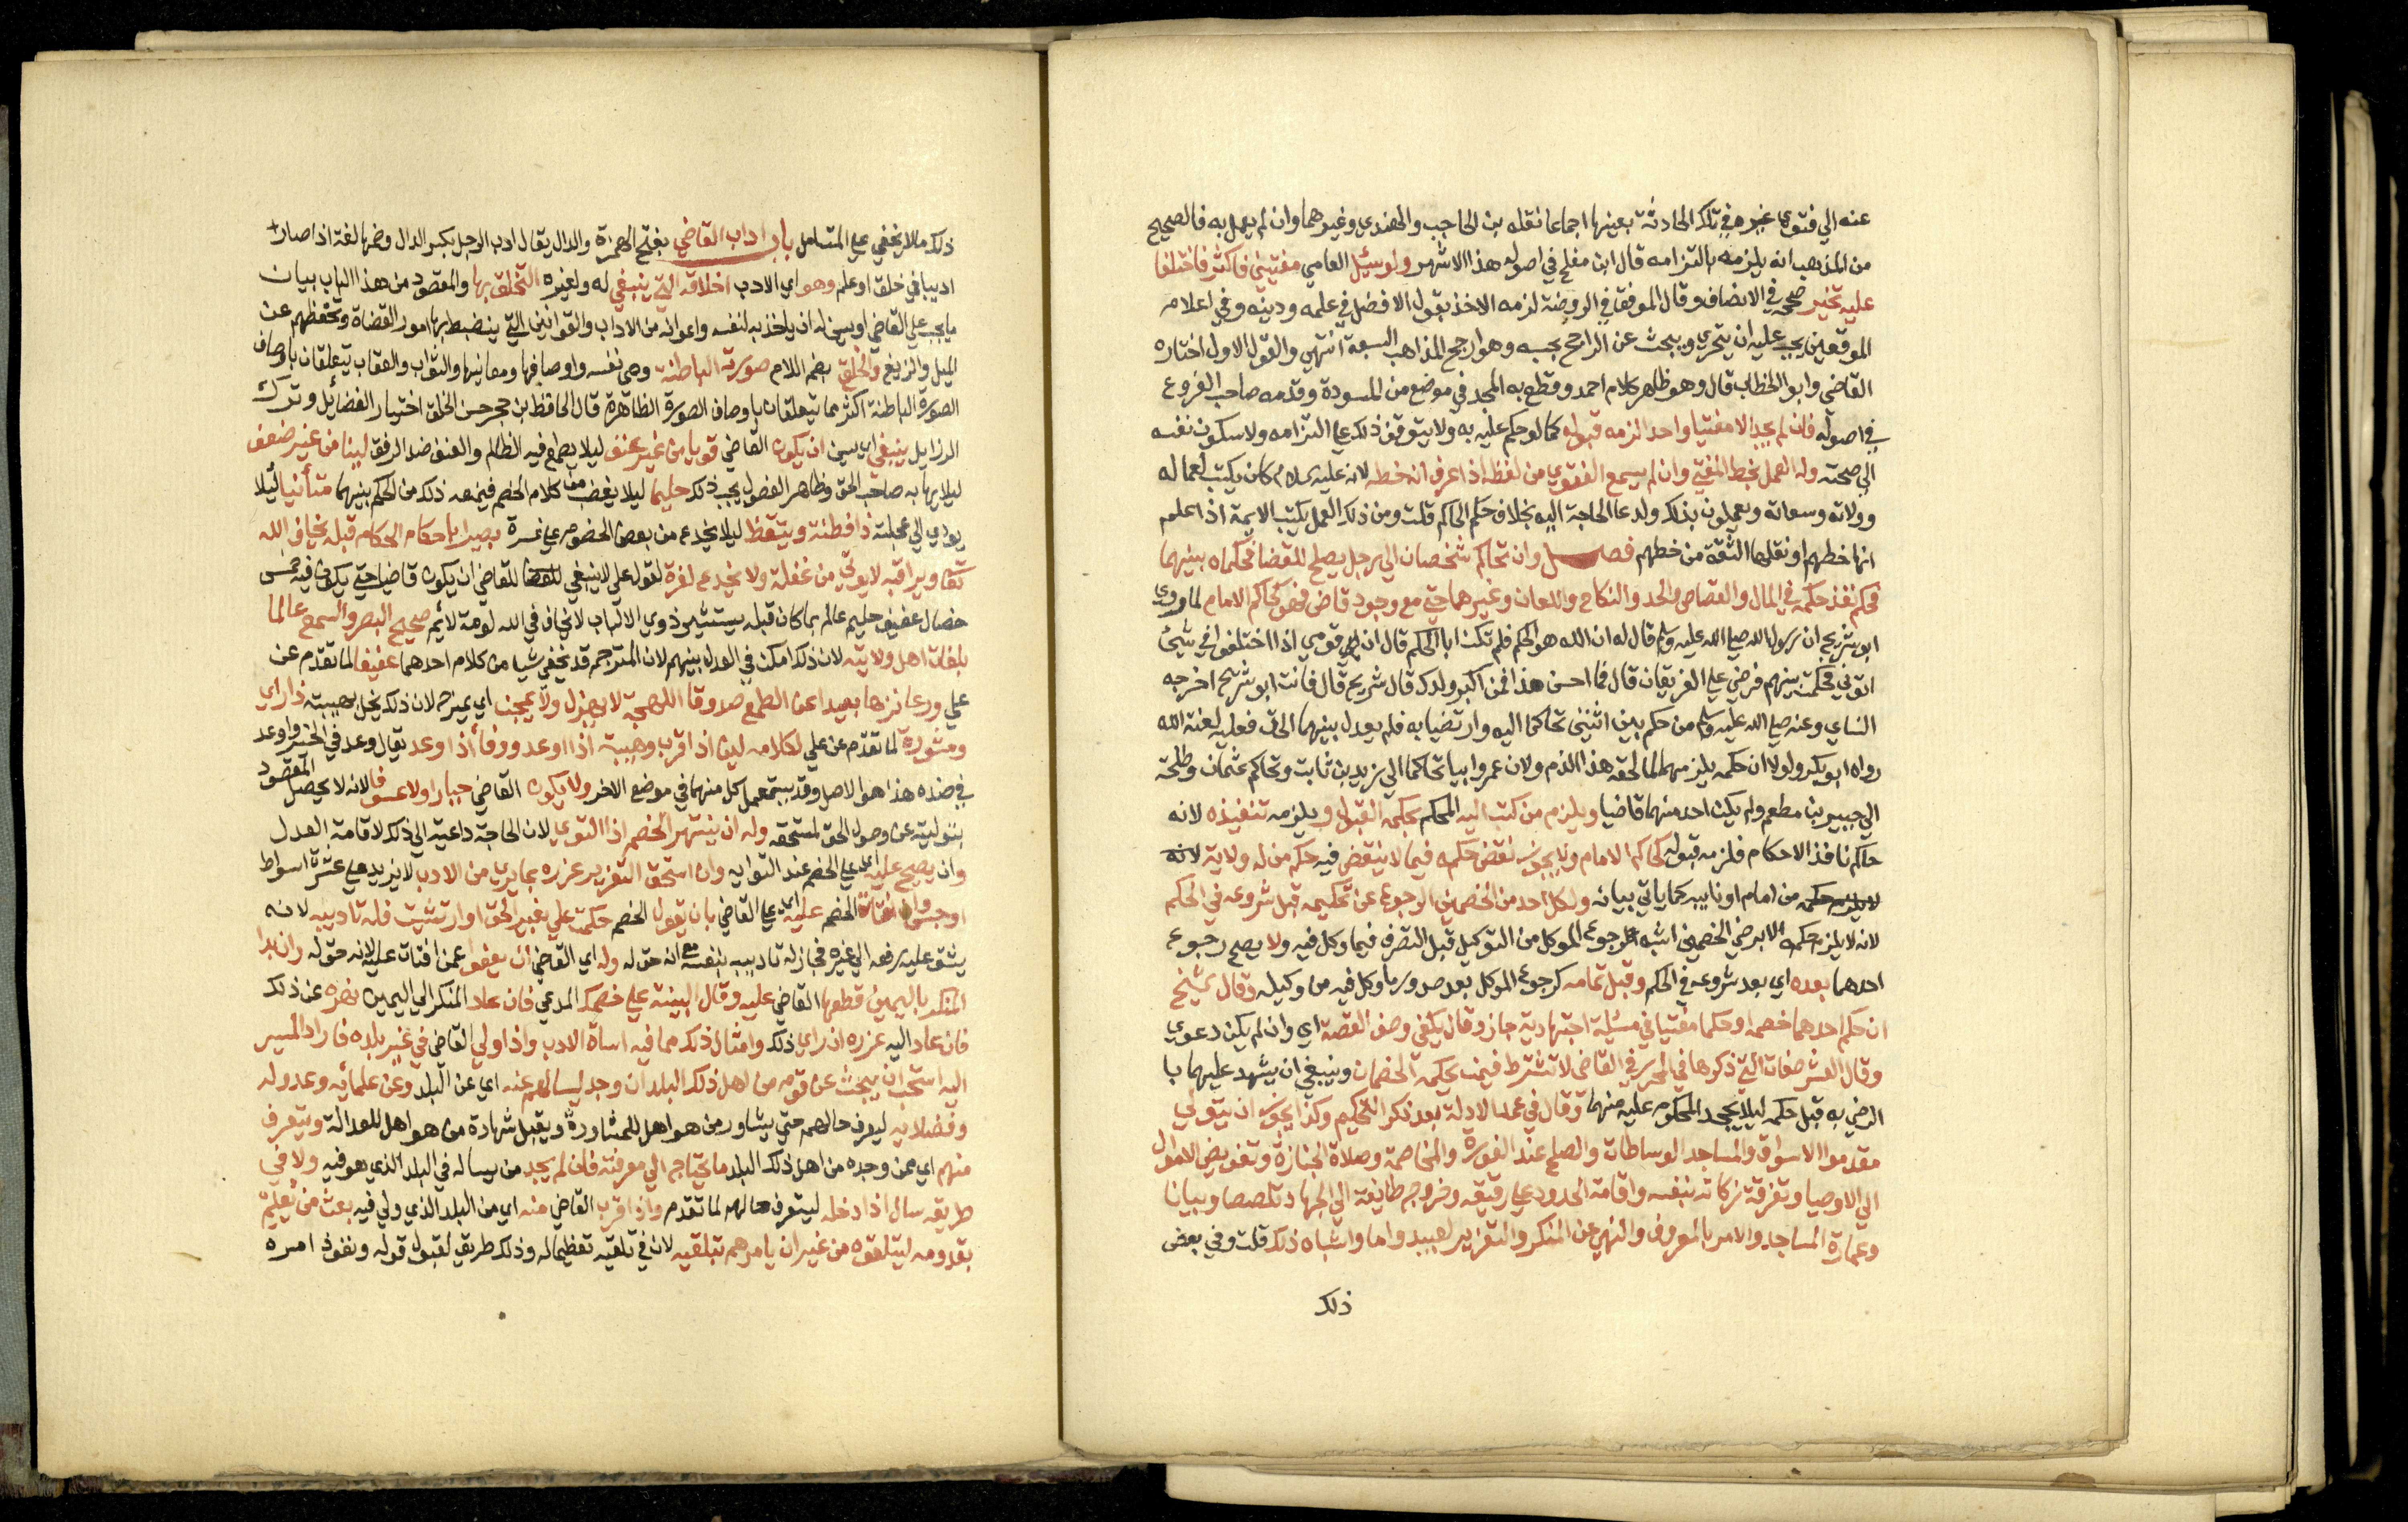 عنه الي فتوي غيره في تلك الحادثة بعينها اجماعا نقله بن الحاجب والهندي وغيرهما وان لم يعمل به فالصحيح
من المذهب انه يلزمه بالتزامه قال ابن مفلح في اصوله هذا الاشهر ولو سئل العامي مفتيين فاكثر فاختلفا
عليه تخير صححه في الانصاف وقال الموفق في الروضة لزمه الاخذ بقول الافضل في علمه ودينه وفي اعلام
الموقعين يجب عليه ان يتحري ويبحث عن الراجح بحسبه وهو ارجح المذاهب السبعة انتهي والقول الاول اختاره
القاضي وابو الخطاب قال وهو ظاهر كلام احمد وقطع به المجد في موضع من المسودة وقدمه صاحب الفروع
في اصوله فان لم يجد الا مفتيا واحدا لزمه قبوله كما لو حكم عليه به ولا يتوقف ذلك علي التزامه ولا سكون نفسه
الي صحته وله العمل بخط المفتي وان لم يسمع الفتوي من لفظه اذا عرف انه خطه لانه عليه السلام كان يكتب لعماله
وولاته وسعاته ويعملون بذلك ولدعا الحاجة اليه بخلاف حكم الحاكم قلت ومن ذلك العمل بكتب الايمة اذا علم
انها خطهم او نقلها الثقة من خطهم فصل وان تحاكم شخصان الي رجل يصلح للقضا فحكماه بينهما
فحكم نفذ حكمه في المال والقصاص والحد والنكاح واللعان وغيرهما حتي مع وجود قاض فهو كحاكم الامام لما روي
ابو شريح ان رسول الله صلي الله عليه وسلم قال له ان الله هو الحكم فلم تكنا ابا الحكم قال ان قومي اذا اختلفوا في شيئ
اتوني فحكمت بينهم فرضي علي الفريقان قال فما احسن هذا فمن اكبر ولدك قال شريح قال فانت ابو شريح اخرجه
النساي وعنه صلي الله عليه وسلم من حكم بين اثنين تحاكما اليه وارتضيا به فلم يعدل بينهما الحق فعليه لعنة الله
رواه ابو بكر ولولا ان حكمه يلزمهما لما لحقه هذا الذم ولان عمر وابيا تحاكما الي زيد بن ثابت وتحاكم عثمان وطلحة
الي جبير بن مطعم ولم يكن احد منهما قاضيا ويلزم من كتب اليه المحكم بحكمه القبول ويلزمه تنفيذه لانه
حاكم نافذ الاحكام فلزمه قبوله كحاكم الامام ولا يجوز نقض حكمه فيما لا ينقض فيه حكم من له ولاية لانه
لا يلزم حكمه من امام او نايبه كما ياتي بيانه ولكل احد من الخصمين الرجوع عن تحكيمه قبل شروعه في الحكم
لانه لا يلزم حكمه الا برضي الخصمين اشبه رجوع الموكل من التوكيل قبل التصرف فيما وكل فيه ولا يصح رجوع
احدهما بعده اي بعد شروعه في الحكم وقبل تمامه كرجوع الموكل بعد صدور ما وكل فيه من وكيله وقال الشيخ
ان حكم احدهما خصمه او حكما مفتيا في مسئلة اجتهادية جاز وقال يكفي وصف القصة اي وان لم يكن دعوي
وقال العشر صفات التي ذكرها في المحرر في القاضي لا تشترط فيمن يحكمه الخصمان وينبغي ان يشهد عليهما با
الرضي به قبل حكمه ليلا يجحد المحكوم عليه منهما وقال في عمد الادلة بعد ذكر التحكيم وكذا يجوز ان يتولي
مقدموا الاسواق والمساجد الوساطات والصلح عند الفورة والمخاصمة وصلاة الجنازة وتفويض الاموال
الي الاوصيا وتفرقة زكاته بنفسه واقامة الحدود علي رقيقه وخروج طايفة الي الجهاد تلصصا وبياتا
وعمارة المساجد والامر بالمعروف والنهي عن المنكر والتعزير لعبيد واما واشباه ذلك قلت وفي بعض
ذلك
ذلك ما لا يخفي علي المتامل باب اداب القاضي بفتح الهمزة والدال يقال ادب الرجل بكسر الدال وضمها لغة اذا صار
اديبا في خلق او علم وهو اي الادب اخلاقه التي ينبغي له ولغيره التخلق بها والمقصود من هذا الباب بيان
ما يجب علي القاضي او يسن له ان ياخذ به نفسه واعوانه من الاداب والقوانين التي ينضبط بها امور القضاة وتحفظهم عن
الميل والزيغ والخلق بضم اللام صورته الباطنة وهي نفسه واوصافها ومعانيها والثواب والعقاب يتعلقان باوصاف
الصورة الباطنة اكثر مما يتعلقان باوصاف الصورة الظاهرة قال الحافظ ابن حجر حسن الخلق اختيار الفضائل وترك
الرزايل ينبغي اي يسن ان يكون القاضي قويا من غير عنف ليلا يطمع فيه الظالم والعنف ضد الرفق لينا من غير ضعف
ليلا يهابه صاحب الحق وظاهر الفصول يجب ذلك حليما ليلا يغضب من كلام الخصم فيمنعه ذلك من الحكم بينهما متأنيا لئلا
يودي الي عجلته ذا فطنة ويتقظ ليلا يخدع من بعض الخصوم علي غرة بصيرا باحكام الحكام قبله يخاف الله
تعا ويراقبه لا يوتي من غفلة ولا يخدع لغرة لقول علي لا ينبغي للقاضي ان يكون قاضيا حتي يكون فيه خمس
خصال عفيف حليم عالم بما كان قبله يستشير ذوي الالباب لا يخاف في الله لومة لائم صحيح البصر والسمع عالما
بلغات اهل ولايته لان ذلك امكن في العدل بينهم لان المترجم قد يخفي شيا من كلام احدهما عفيفا لما تقدم عن
علي ورعا نزها بعيدا عن الطمع صدوقا اللهجة لا يهزل ولا يمجن اي يمزح لان ذلك يخل بهيبته ذا راي
ومشورة لما تقدم عن علي لكلامه لين اذا قرب وهيبة اذا اوعد ووفا أذا وعد يقال وعد في الخير واوعد
في ضده هذا هو الاصل وقد يستعمل كل منهما في موضع الاخر ولا يكون القاضي جبارا ولا عسوفا لانه لا يحصل المقصود
بتوليته عن وصول الحق لمستحقه وله ان ينتهر الخصم اذا التوي لان الحاجة داعية الي ذلك لاقامة العدل
وان يصيح عليه اي علي الخصم عند التوايه وان استحق التعزير عزره بما يري من الادب لا يزيد علي عشرة اسواط
او حبس وان افتات الخصم عليه اي علي القاضي بان يقول الخصم حكمت علي بغير الحق او ارتشيت فله تاديبه لانه
يشق عليه رفعه الي غيره فجاز له تاديبه بنفسه مع انه حق له وله اي القاضي أن يعفوا عمن افتات عليه لانه حق له وان بدا
المنكر باليمين قطعها القاضي عليه وقال البينة علي خصمك المدعي فان عاد المنكر الي اليمين نهره عن ذلك
فان عاد اليه عزره ان راي ذلك وامثال ذلك مما فيه اساة الادب واذا ولي القاضي في غير بلده فاراد المسير
اليه استحب ان يبحث عن قوم من اهل ذلك البلد ان وجد ليسالهم عنه اي عن البلد وعن علمائه وعدوله
وفضلايه ليعرف حالهم حتي يشاور من هو اهل للمشاورة ويقبل شهادة من هو اهل للعدالة ويتعرف
منهم اي ممن وجده من اهل ذلك البلد ما يحتاج الي معرفته فان لم يجد من يساله في البلد الذي هو فيه ولا في
طريقه سال اذا دخله ليتعرف حالهم لما تقدم واذا قرب القاضي منه اي من البلد الذي ولي فيه بعث من يعلم
بقدومه ليتلقوه من غير ان يامرهم بتلقيه لان في تلقيه تعظيما له وذلك طريق لقبول قوله ونفوذ امره